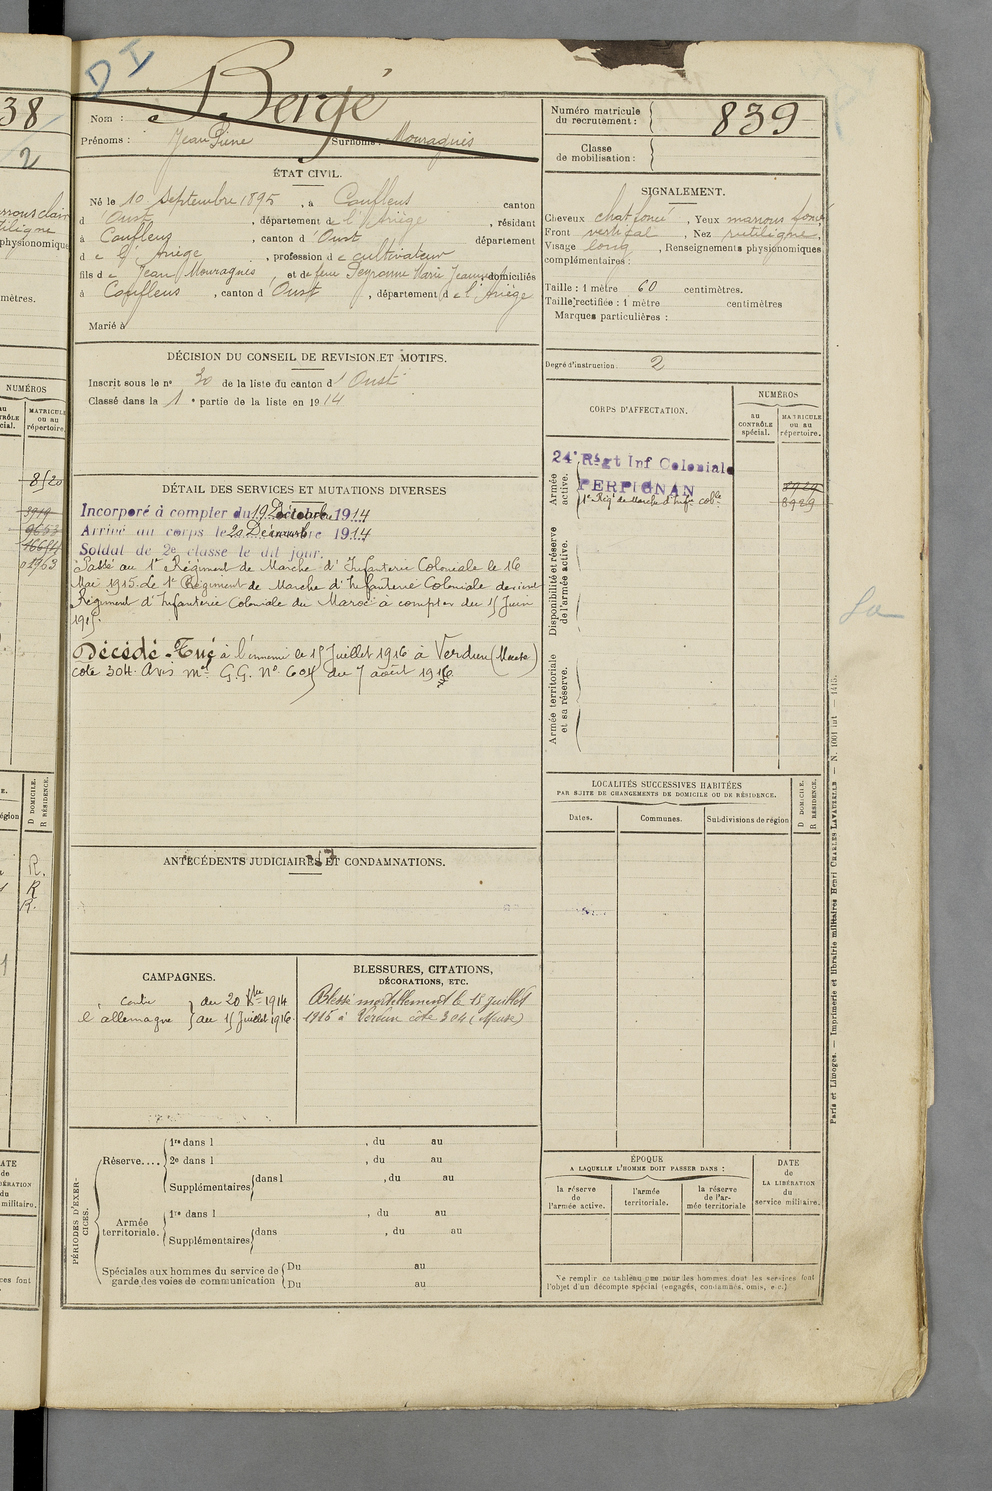 D I
Bergé
Nom :
Prénoms : Jean Pierre Surnoms : Mouragués
Numéro matricule du recrutement : 839
Classe de mobilisation :
ÉTAT CIVIL.
Né le 10 Septembre 1895, à Couflens canton
d'Oust, département de l'Ariège, résidant
à Couflens, canton d'Oust département
de l'Ariège, profession de cultivateur
fils de Jean Mouragués, et de feue Peyronne Marie Jeanne domiciliés
à Couflens, canton d'Oust, département de l'Ariège
Marié à
SIGNALEMENT.
Cheveux chat foncé, Yeux marrons foncé
Front vertical, Nez rectiligne,
Visage long, Renseignements physionomiques
complémentaires :
Taille : 1 mètre 60 centimètres.
Taille rectifiée : 1 mètre centimètres
Marques particulières :
Degré d'instruction : 2
DÉCISION DU CONSEIL DE REVISION ET MOTIFS.
Inscrit sous le n° 30 de la liste du canton d'Oust
Classé dans la 1e partie de la liste en 1914
DÉTAIL DES SERVICES ET MUTATIONS DIVERSES
Incorporé à compter du 19 Décembre 1914
Arrivé au corps le 20 Décembre 1914
Soldat de 2e classe le dit jour.
Passé au 1er Régiment de Marche d'Infanterie Coloniale le 16
Mai 1915. Le 1er Régiment de Marche d'Infanterie Coloniale devient
Régiment d'Infanterie Coloniale du Maroc à compter du 15 Juin
1915.
Décédé - Tué à l'ennemi le 15 Juillet 1916 à Verdun (Meuse)
cote 304. Avis m.el G.G. N° 605 du 7 août 1916
CORPS D'AFFECTATION.
NUMÉROS
au CONTRÔLE spécial.
MATRICULE ou au répertoire.
Armée active.
24e Régt Inf Coloniale
PERPIGNAN
1er Régt de Marche d'Infie colle
8929
Disponibilité et réserve de l'armée active.
Armée territoriale et sa réserve.
LOCALITÉS SUCCESSIVES HABITÉES
PAR SUITE DE CHANGEMENTS DE DOMICILE OU DE RÉSIDENCE.
Dates.
Communes.
Subdivisions de région
D DOMICILE.
R RÉSIDENCE.
ANTÉCÉDENTS JUDICIAIRES ET CONDAMNATIONS.
CAMPAGNES.
contre } du 20 Xbre 1914
l'allemagne } au 15 Juillet 1916
BLESSURES, CITATIONS,
DÉCORATIONS, ETC.
Blessé mortellement le 15 Juillet
1916 à Verdun côte 304 (Meuse)
PÉRIODES D'EXERCICES.
Réserve....
1re dans l , du au
2e dans l , du au
Supplémentaires dans l , du au
Armée territoriale.
1re dans l , du au
Supplémentaires dans , du au
Spéciales aux hommes du service de garde des voies de communication
Du au
Du au
ÉPOQUE
A LAQUELLE L'HOMME DOIT PASSER DANS :
la réserve de l'armée active.
l'armée territoriale.
la réserve de l'armée territoriale
DATE de LA LIBÉRATION du service militaire.
Ne remplir ce tableau que pour les hommes dont les services font
l'objet d'un décompte spécial (engagés, condamnés, omis, etc.)
Paris et Limoges. — Imprimerie et librairie militaires Henri CHARLES-LAVAUZELLE
38
2
physionomique
mètres.
NUMÉROS
MATRICULE
ou au
répertoire.
8520
D DOMICILE.
R RÉSIDENCE.
R.
R
R.